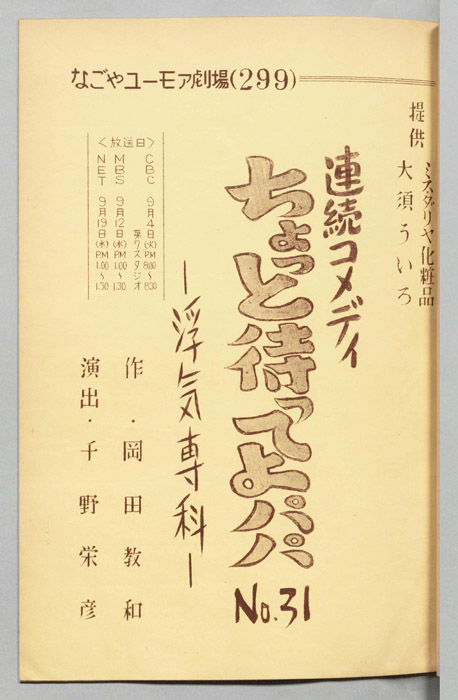 なごやユーモア劇場(299)
提供
ミスダリヤ化粧品
大須ういろ
連続コメディ
ちょっと待ってよパパ
No.31
ー浮気専科ー
<放送日>
CBC 9月4日(火)PM8:00〜8:30
第7スタジオ
MBS 9月12日(水)PM1.00〜1.30
NET 9月19日(水)PM1.00〜1.30
作・岡田教和
演出・千野栄彦